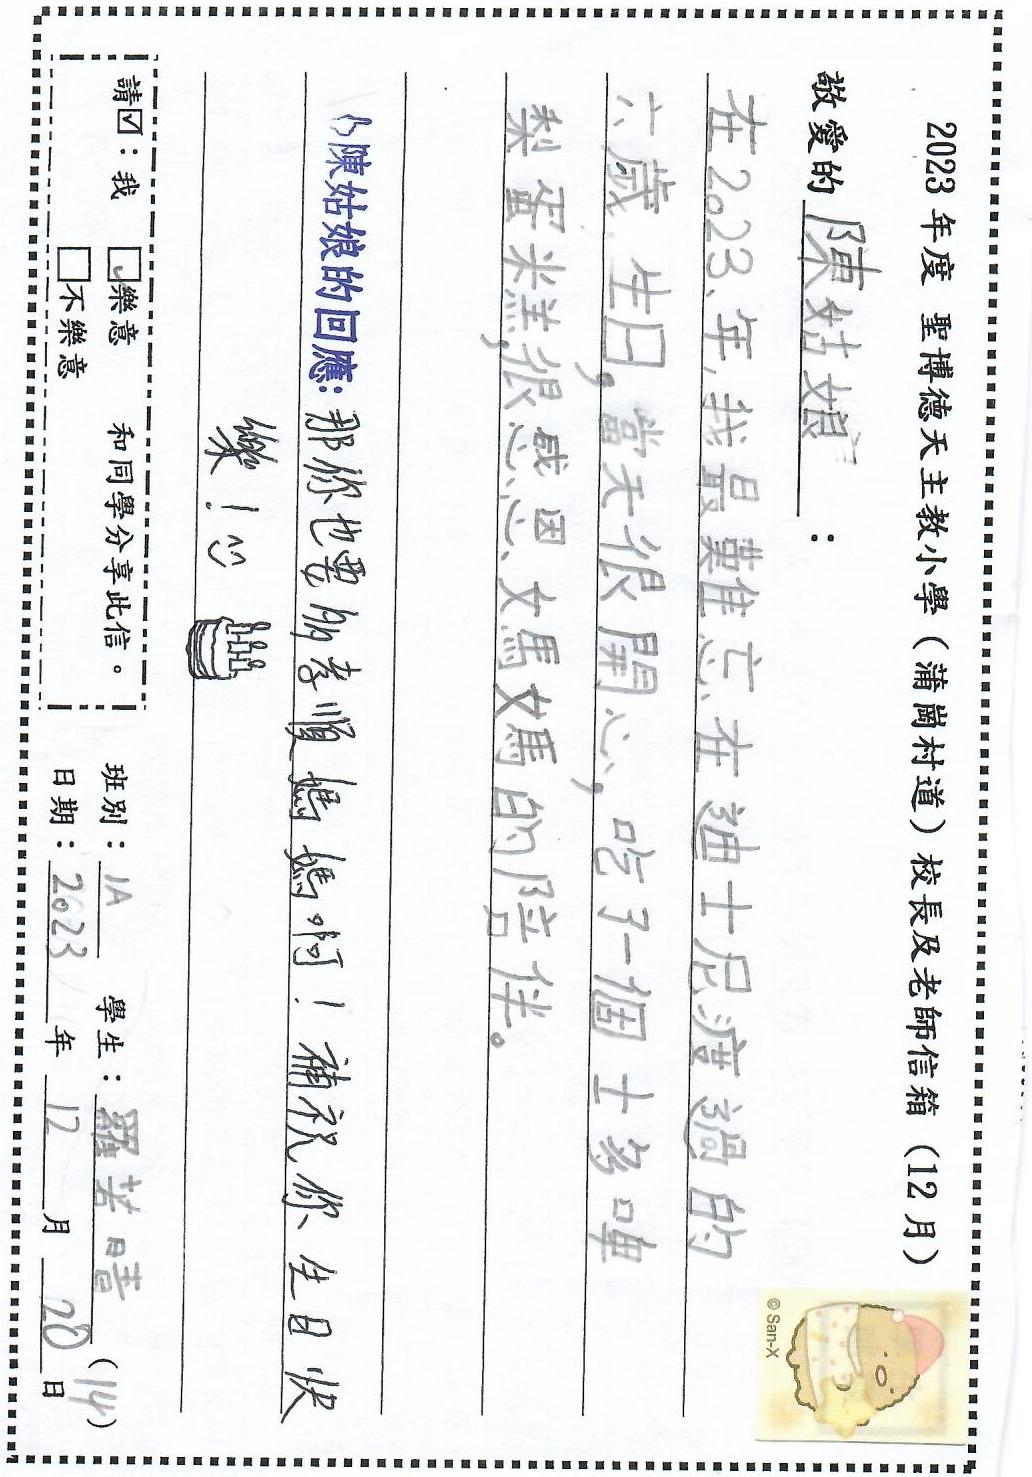 2023 年度 聖博德天主教小學（蒲崗村道）校長及老師信箱（12 月）
© San-X
敬愛的 陳姑娘 ：
在2023年,我最難忘在迪士尼渡過的
六歲生日,當天很開心,吃了一個士多啤
梨蛋米糕,很感恩媽媽的陪伴。
陳姑娘的回應：那你也要多孝順媽媽啊！補祝你生日快
樂！
請☑：我 ☑樂意 和同學分享此信。
☐不樂意
班別：1A 學生：羅若𣈱 (14)
日期：2023 年 12 月 20 日